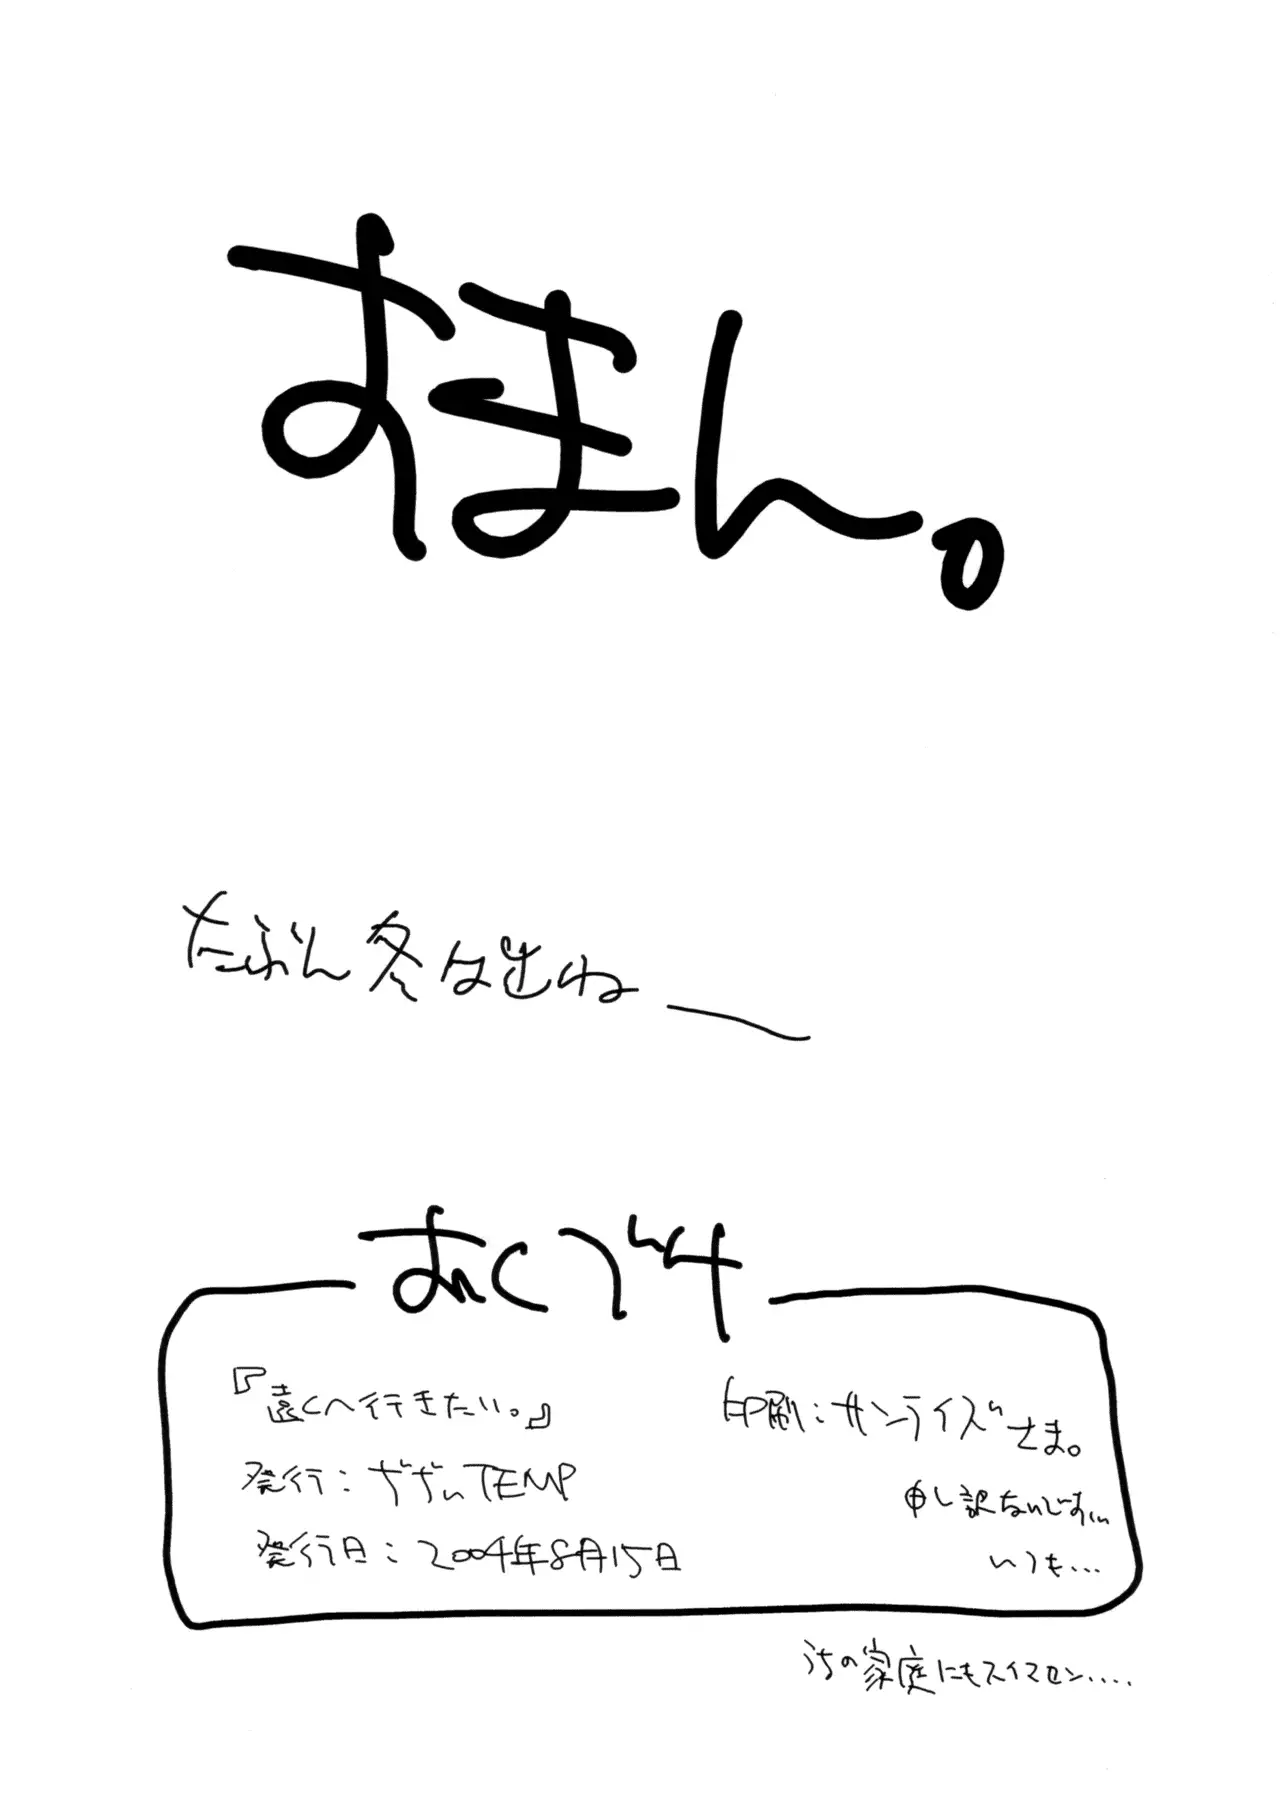 すまん。
たぶん冬は出ね
おくづけ
『遠くへ行きたい。』
発行：ガガぃTEMP
発行日：2004年8月15日
印刷：サンライズさま。
申し訳ないです…
いつも…
うちの家庭にもスイマセン....